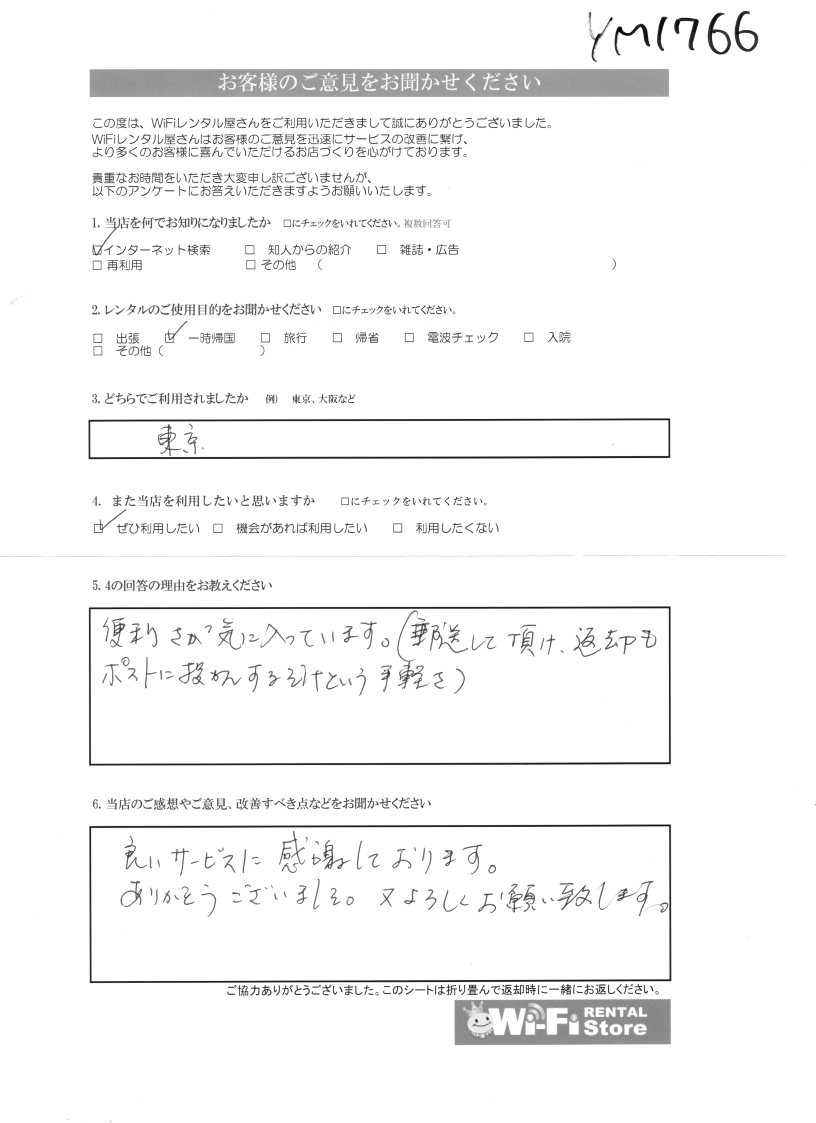 YM1766
お客様のご意見をお聞かせください
この度は、WiFiレンタル屋さんをご利用いただきまして誠にありがとうございました。
WiFiレンタル屋さんはお客様のご意見を迅速にサービスの改善に繋げ、
より多くのお客様に喜んでいただけるお店づくりを心がけております。
貴重なお時間をいただき大変申し訳ございませんが、
以下のアンケートにお答えいただきますようお願いいたします。
1. 当店を何でお知りになりましたか □にチェックをいれてください。複数回答可
☑インターネット検索 □ 知人からの紹介 □ 雑誌・広告
□ 再利用 □ その他 （ ）
2. レンタルのご使用目的をお聞かせください □にチェックをいれてください。
□ 出張 ☑ 一時帰国 □ 旅行 □ 帰省 □ 電波チェック □ 入院
□ その他（ ）
3. どちらでご利用されましたか 例） 東京、大阪など
東京
4. また当店を利用したいと思いますか □にチェックをいれてください。
☑ ぜひ利用したい □ 機会があれば利用したい □ 利用したくない
5. 4の回答の理由をお教えください
便利さが気に入っています。（郵送して頂け、返却も
ポストに投かんするだけという手軽さ）
6. 当店のご感想やご意見、改善すべき点などをお聞かせください
良いサービスに感謝しております。
ありがとうございました。又よろしくお願い致します。
ご協力ありがとうございました。このシートは折り畳んで返却時に一緒にお返しください。
Wi-Fi RENTAL Store